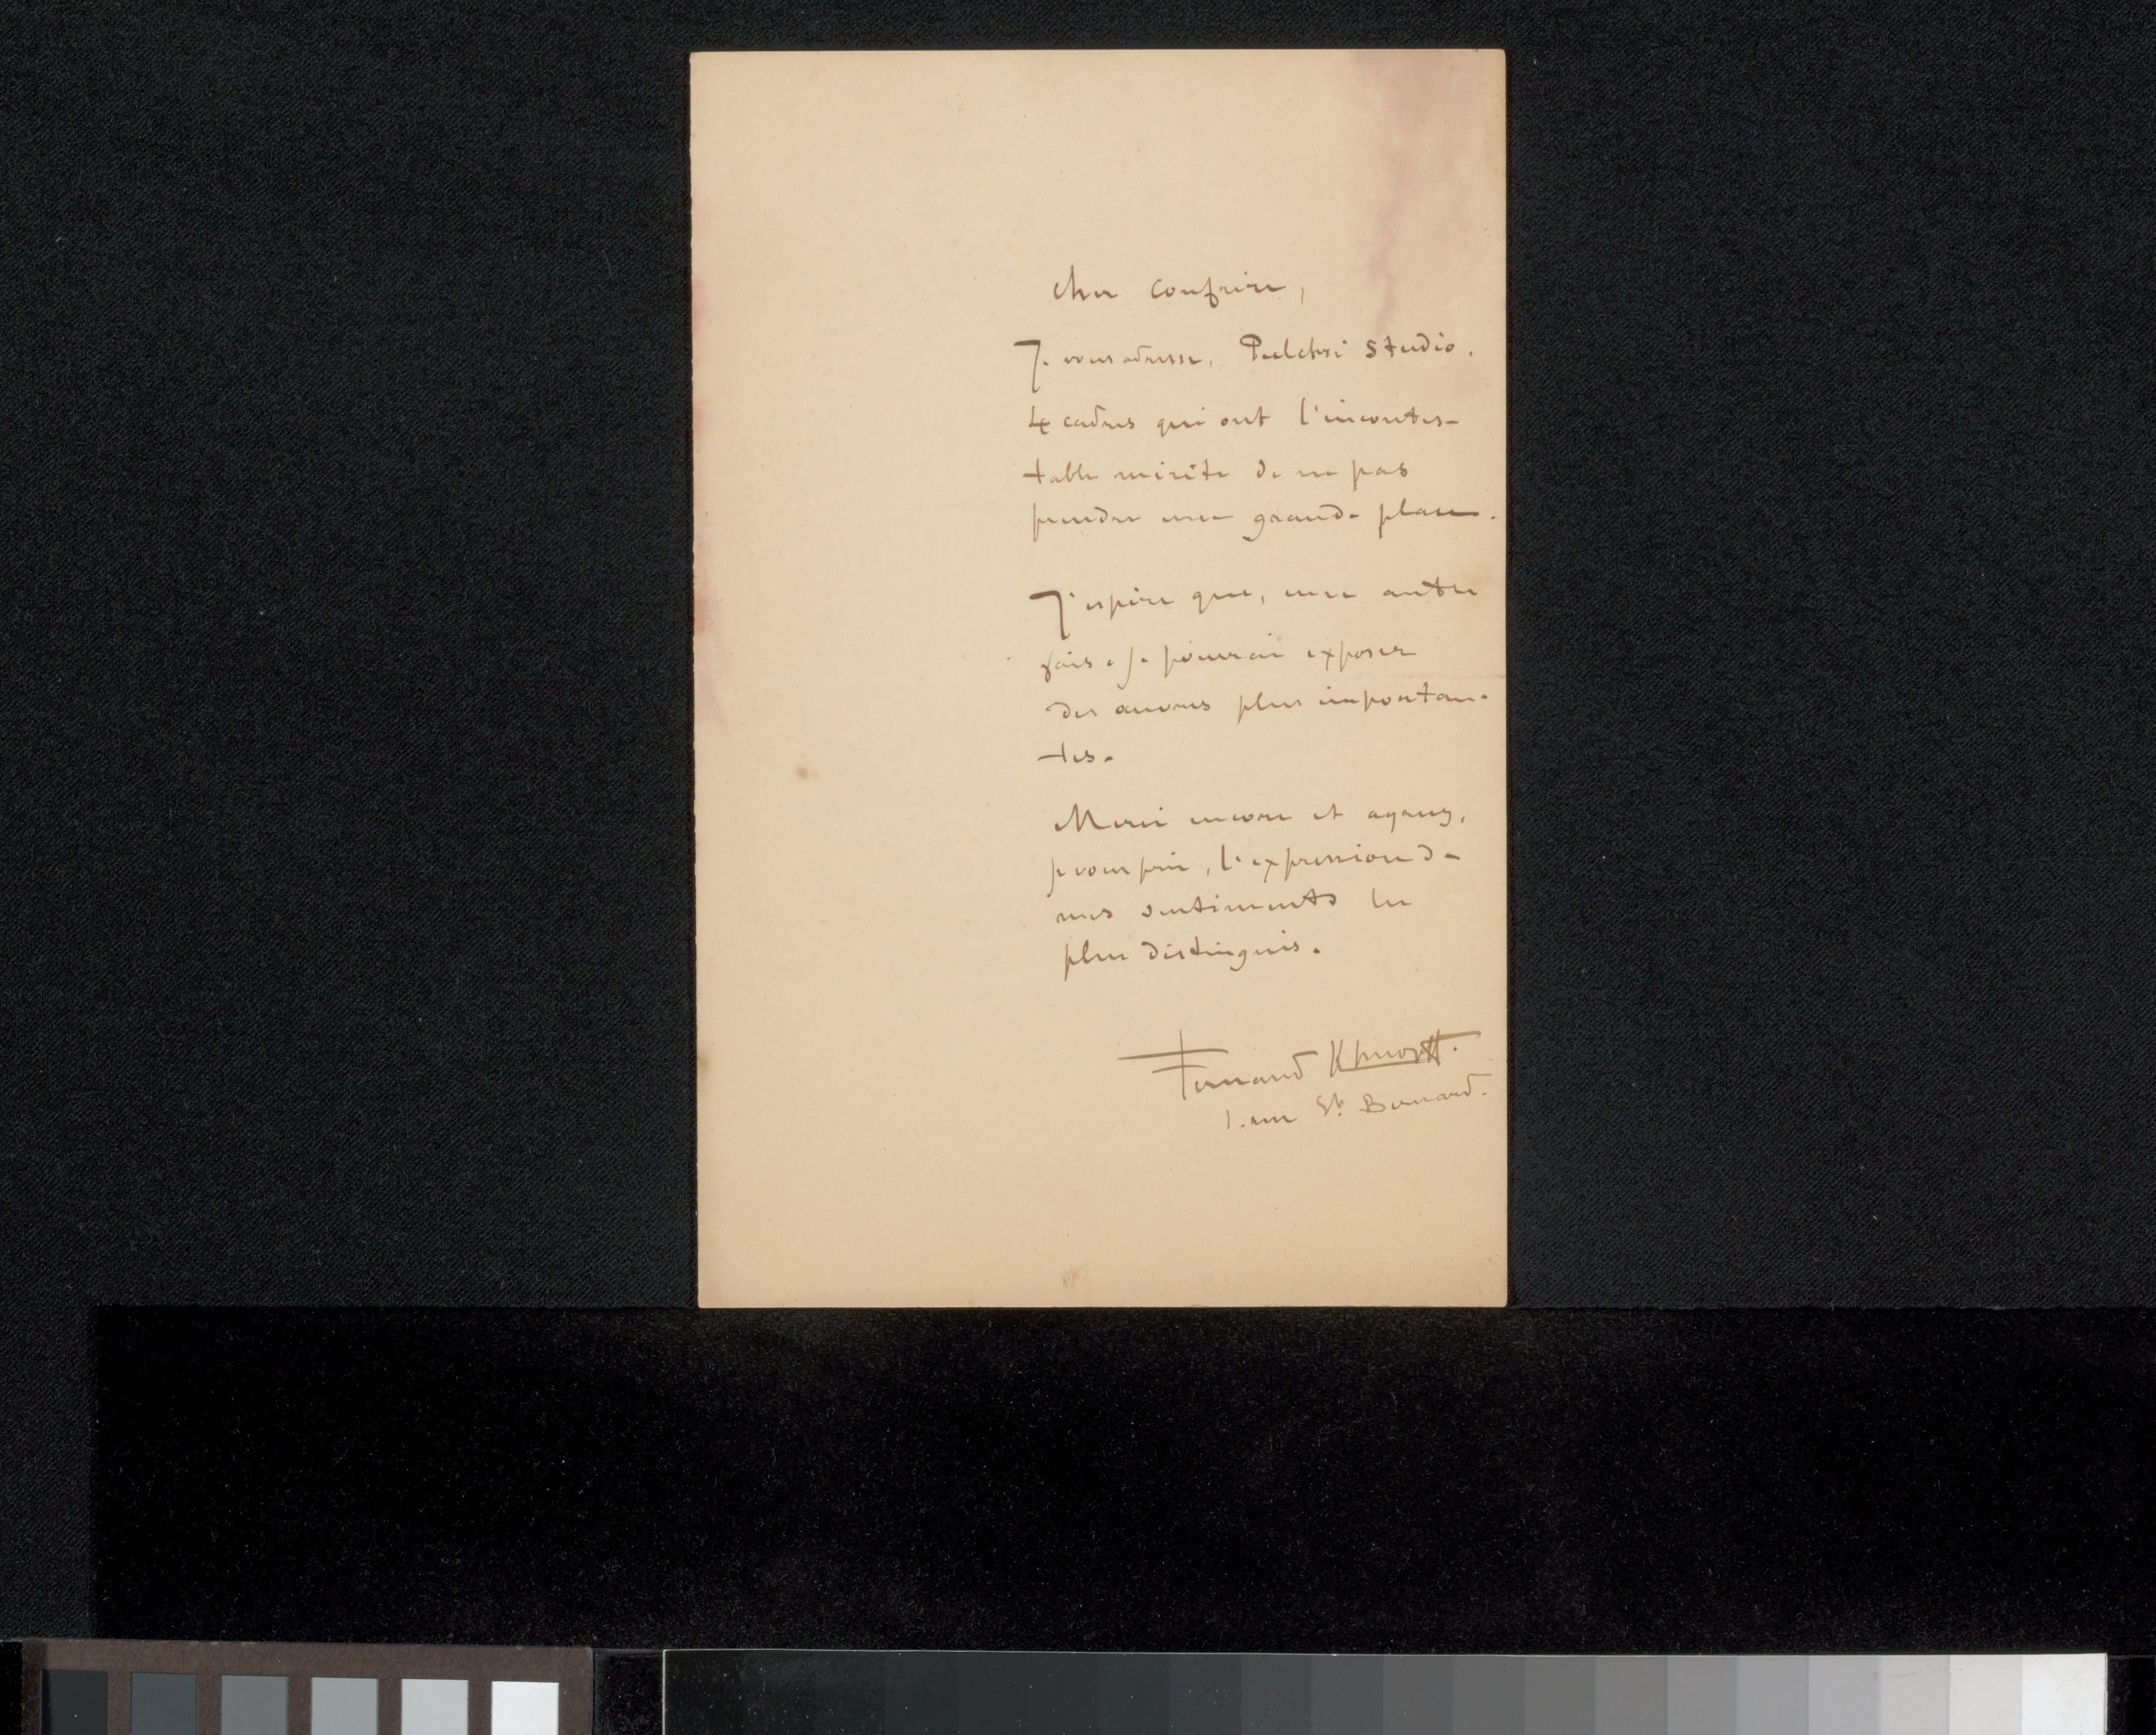 Cher confrère,
Je vous adresse, Pulchri Studio,
4 cadres qui ont l'incontes-
table mérite de ne pas
prendre une grande place.
J'espère que, une autre
fois, je pourrai exposer
des œuvres plus importan-
tes.
Merci encore et agréez,
je vous prie, l'expression de
mes sentiments les
plus distingués.
Fernand Khnopff.
1. rue St Bernard.